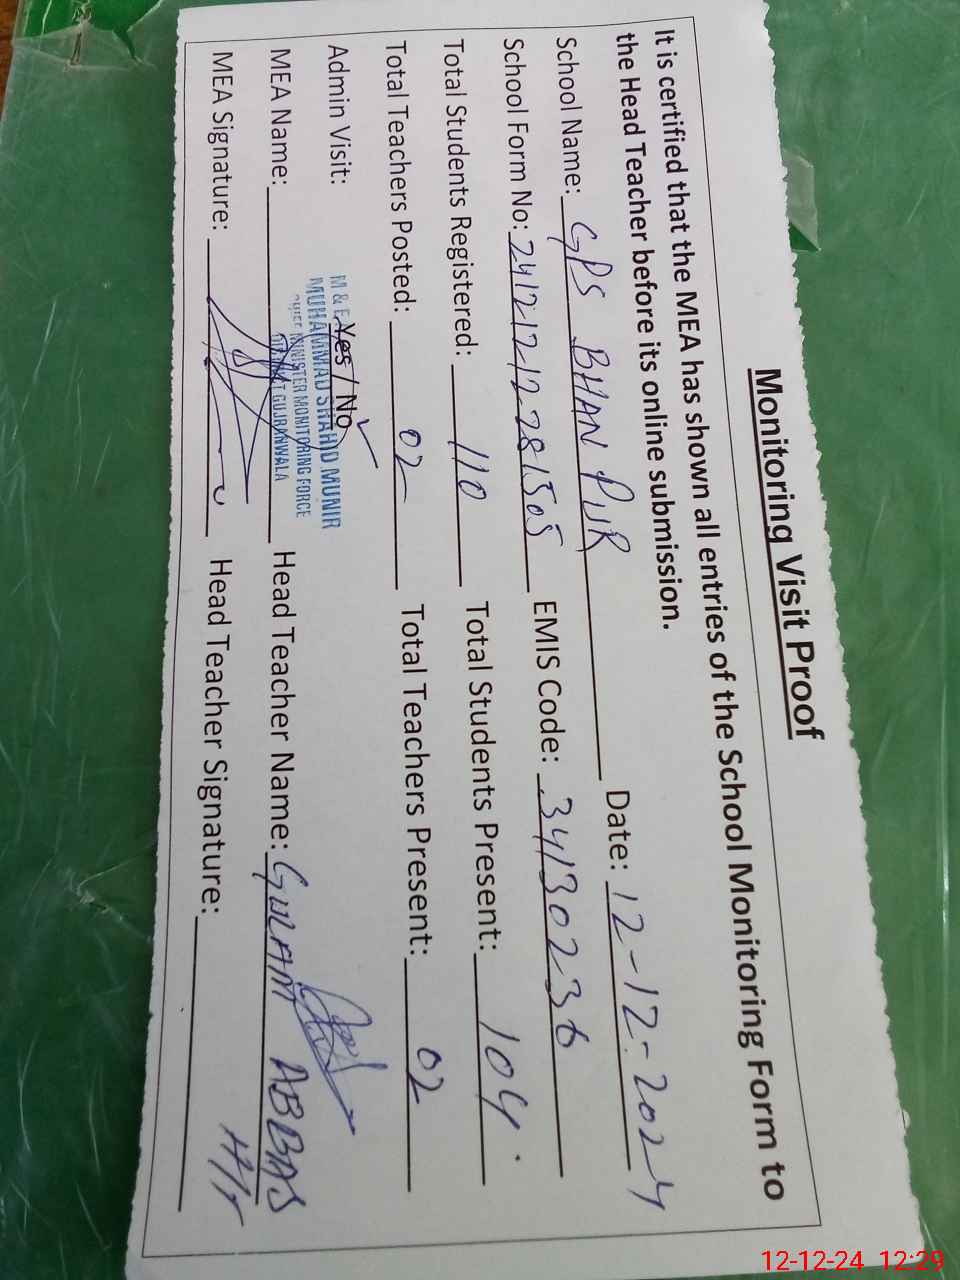 Monitoring Visit Proof
It is certified that the MEA has shown all entries of the School Monitoring Form to
the Head Teacher before its online submission.
School Name: GPS BHAN PUR Date: 12-12-2024
School Form No: 24121212281505 EMIS Code: 34130236
Total Students Registered: 110 Total Students Present: 104
Total Teachers Posted: 02 Total Teachers Present: 02
Admin Visit: Yes / No
M & E
MUHAMMAD SHAHID MUNIR
CHIEF MINISTER MONITORING FORCE
DISTRICT GUJRANWALA
MEA Name: Head Teacher Name: GULAM ABBAS
MEA Signature: Head Teacher Signature:
12-12-24 12:29